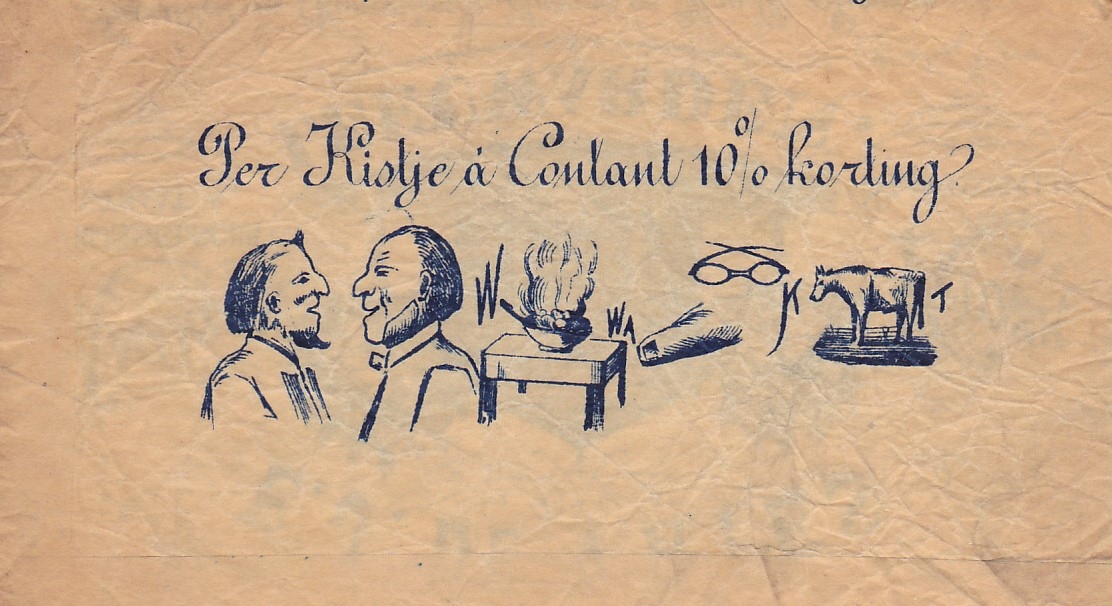 Per Kistje á Contant 10% korting.
W WA K T